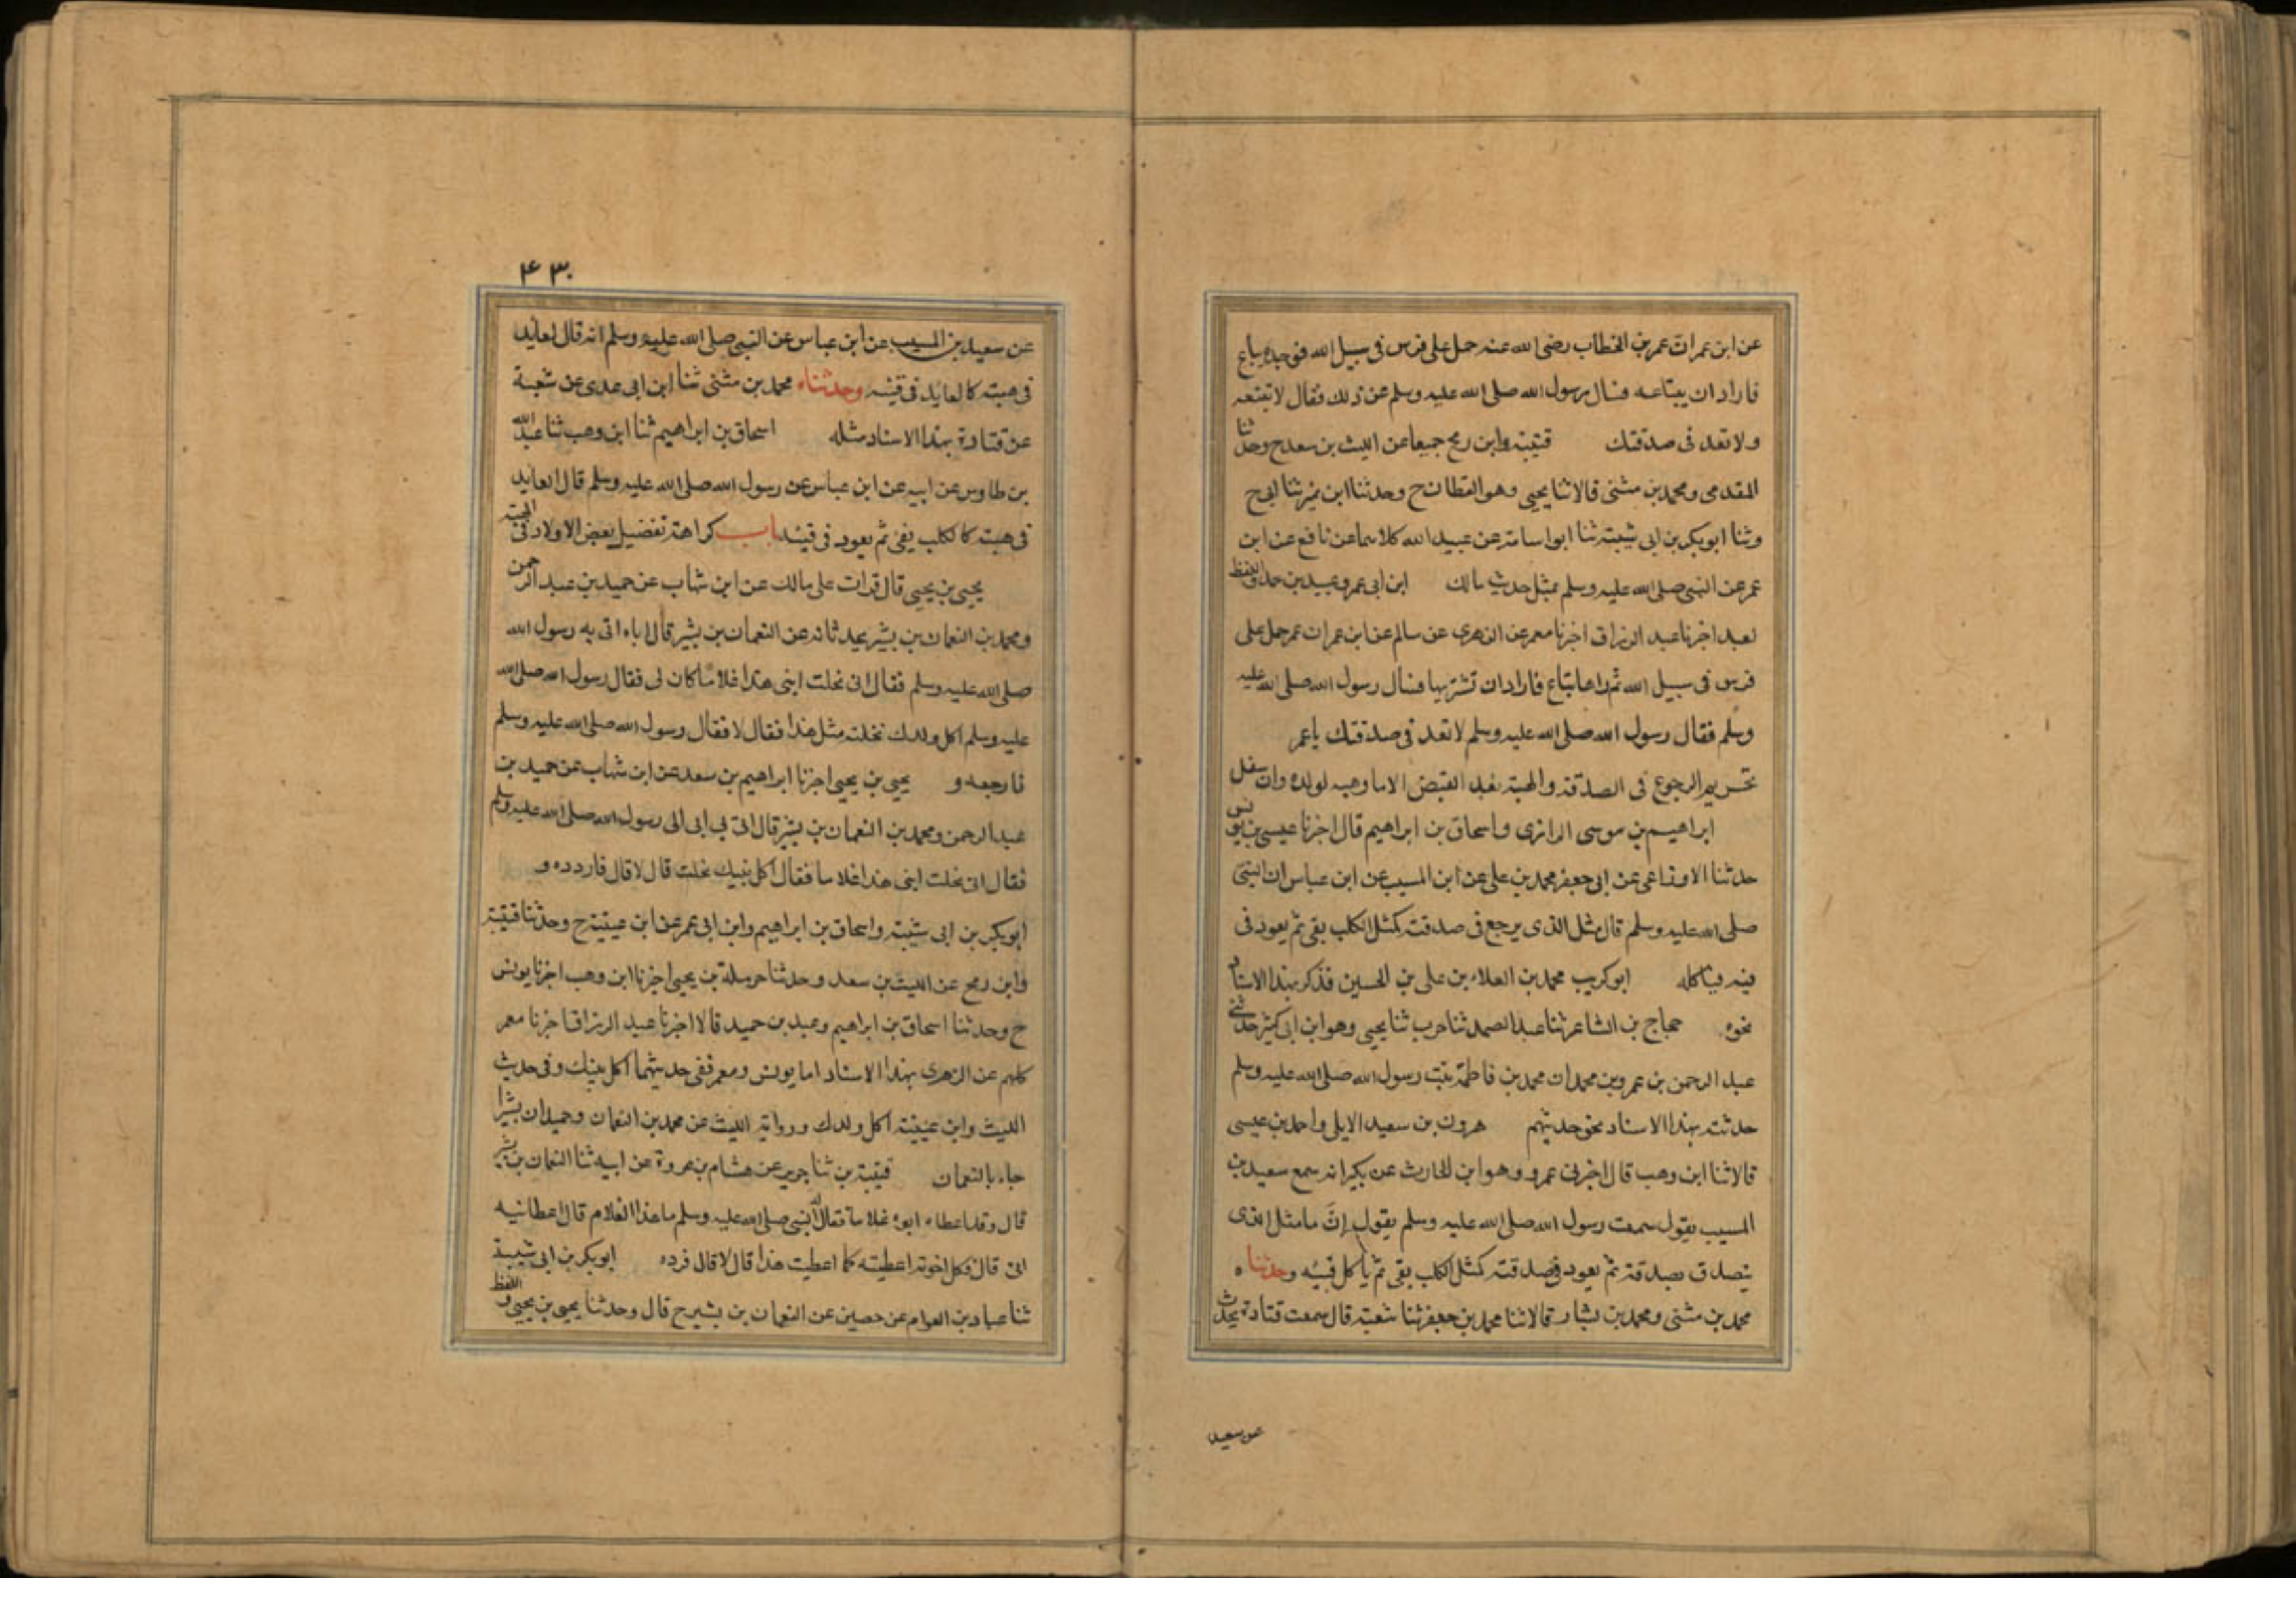 عن ابن عمر ان عمر بن الخطاب رضى الله عنه حمل على فرس فى سبيل الله فوجده يباع
فاراد ان يبتاعه فسال رسول الله صلى الله عليه وسلم عن ذلك فقال لا تبتعه
ولا تعد فى صدقتك قتيبة وابن رمح جميعا عن الليث بن سعد ح وحدثنا
المقدمى ومحمد بن مثنى قالا ثنا يحيى وهو القطان ح وحدثنا ابن نمير ثنا ابى ح
وثنا ابو بكر بن ابى شيبة ثنا ابو اسامة عن عبيد الله كلاهما عن نافع عن ابن
عمر عن النبى صلى الله عليه وسلم بمثل حديث مالك ابن ابى عمر وعبيد بن حمد واللفظ
لعبد اخبرنا عبد الرزاق اخبرنا معمر عن الزهرى عن سالم عن ابن عمر ان عمر حمل على
فرس فى سبيل الله ثم راها تباع فاراد ان تشتريها فسال رسول الله صلى الله عليه
وسلم فقال رسول الله صلى الله عليه وسلم لا تعد فى صدقتك يا عمر
تحريم الرجوع فى الصدقة والهبة بعد القبض الا ما وهبه لولده وان سفل
ابراهيم بن موسى الرازى واسحاق بن ابراهيم قال اخبرنا عيسى بن يونس
حدثنا الاوزاعى عن ابى جعفر محمد بن على عن ابن المسيب عن ابن عباس ان النبى
صلى الله عليه وسلم قال مثل الذى يرجع فى صدقته كمثل الكلب يقى ثم يعود فى
قيئه فياكله ابو كريب محمد بن العلاء بن على بن الحسين فذكر بهذا الاسناد
نحوه حجاج بن الشاعر ثنا عبد الصمد ثنا حرب ثنا يحيى وهو ابن ابى كثير حدثنى
عبد الرحمن بن عمرو بن محمد ان محمد بن فاطمة بنت رسول الله صلى الله عليه وسلم
حدثته بهذا الاسناد نحو حديثهم هرون بن سعيد الايلى واحمد بن عيسى
قالا ثنا ابن وهب قال اخبرنى عمرو وهو ابن الحارث عن بكير انه سمع سعيد بن
المسيب يقول سمعت رسول الله صلى الله عليه وسلم يقول انَّ ما مثل الذى
يتصدق بصدقة ثم يعود فى صدقته كمثل الكلب يقى ثم ياكل قيئه وحدثناه
محمد بن مثنى ومحمد بن بشار قالا ثنا محمد بن جعفر ثنا شعبة قال سمعت قتادة يحدث
عن سعيد
۴۳۰
عن سعيد بن المسيب عن ابن عباس عن النبى صلى الله عليه وسلم انه قال العايد
فى هبته كالعايد فى قيئه وحدثناه محمد بن مثنى ثنا ابن ابى عدى عن شعبة
عن قتادة بهذا الاسناد مثله اسحاق بن ابراهيم ثنا ابن وهب ثنا عبد الله
بن طاوس عن ابيه عن ابن عباس عن رسول الله صلى الله عليه وسلم قال العايد
فى هبته كالكلب يقى ثم يعود فى قيئه باب كراهة تفضيل بعض الاولاد فى الهبة
يحيى بن يحيى قال قرات على مالك عن ابن شهاب عن حميد بن عبد الرحمن
ومحمد بن النعمان بن بشير يحدثانه عن النعمان بن بشير قال اباه اتى به رسول الله
صلى الله عليه وسلم فقال انى نحلت ابنى هذا غلاما كان لى فقال رسول الله صلى الله
عليه وسلم اكل ولدك نحلته مثل هذا فقال لا فقال رسول الله صلى الله عليه وسلم
فارجعه و يحيى بن يحيى اخبرنا ابراهيم بن سعد عن ابن شهاب عن حميد بن
عبد الرحمن ومحمد بن النعمان بن بشير قال اتى بى ابى الى رسول الله صلى الله عليه وسلم
فقال انى نحلت ابنى هذا غلاما فقال اكل بنيك نحلت قال لا قال فاردده و
ابو بكر بن ابى شيبة واسحاق بن ابراهيم وابن ابى عمر عن ابن عيينة ح وحدثنا قتيبة
وابن رمح عن الليث بن سعد وحدثنا حرملة بن يحيى اخبرنا ابن وهب اخبرنا يونس
ح وحدثنا اسحاق بن ابراهيم وعبد بن حميد قالا اخبرنا عبد الرزاق اخبرنا معمر
كلهم عن الزهرى بهذا الاسناد اما يونس ومعمر ففى حديثهما اكل بنيك وفى حديث
الليث وابن عيينة اكل ولدك ورواية الليث عن محمد بن النعمان وحميد ان بشيرا
جاء بالنعمان قتيبة بن ثنا جرير عن هشام بن عروة عن ابيه ثنا النعمان بن بشير
قال وقد اعطاه ابوه غلاما فقال له النبى صلى الله عليه وسلم ما هذا الغلام قال اعطانيه
ابى قال فكل اخوته اعطيته كما اعطيت هذا قال لا قال فرده ابو بكر بن ابى شيبة
ثنا عباد بن العوام عن حصين عن النعمان بن بشير ح قال وحدثنا يحيى بن يحيى واللفظ